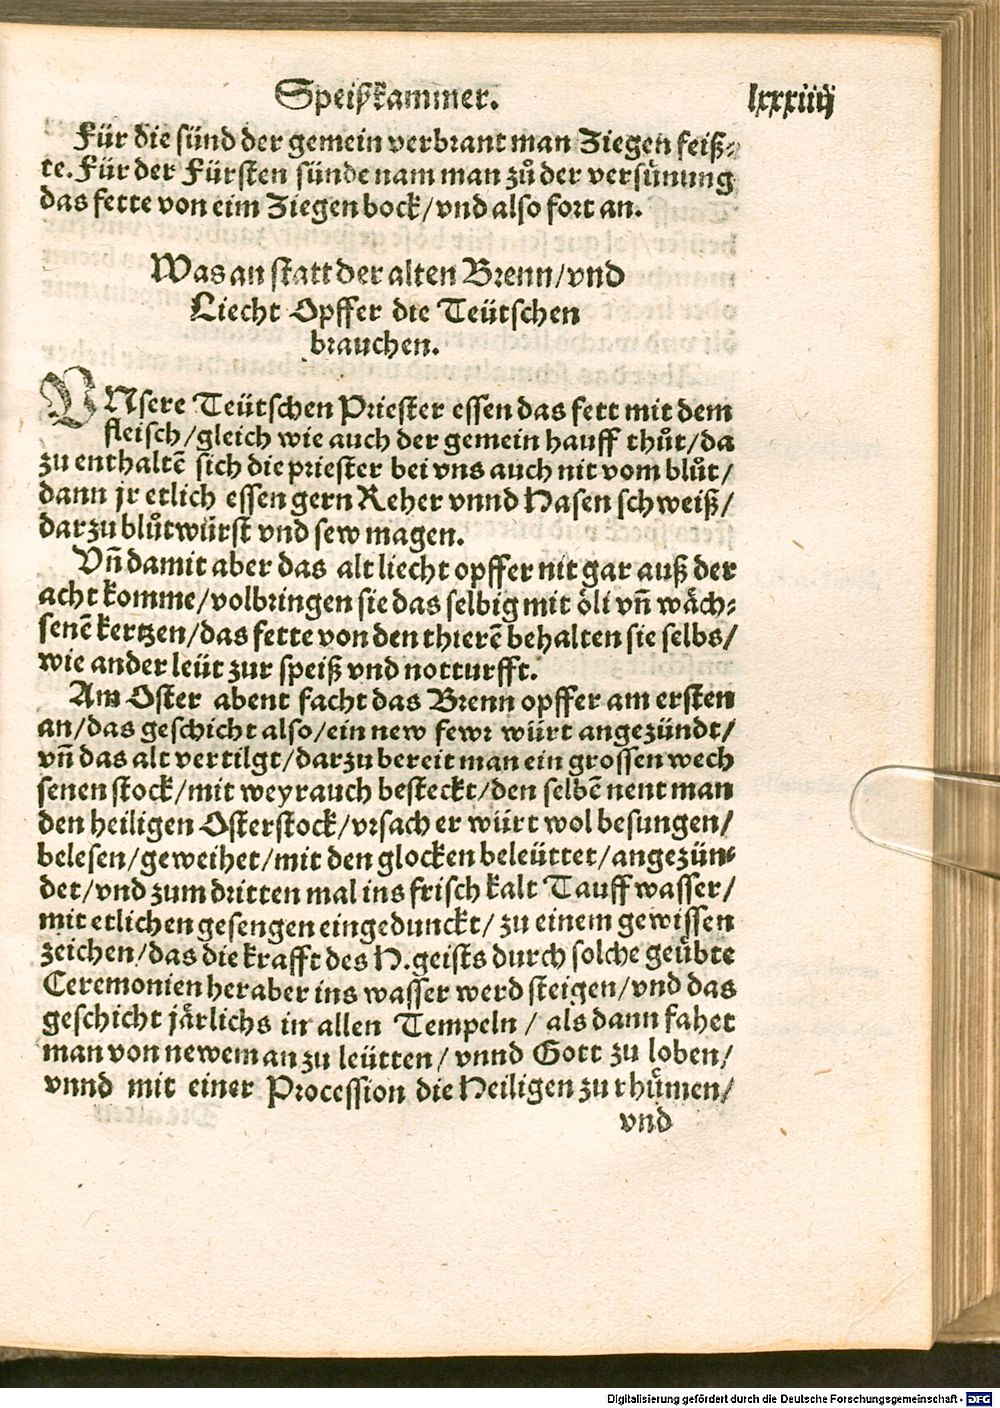 Speißkammer. lxxxiiij
Für die sünd der gemein verbrant man Ziegen feiß⸗
te. Für der Fürsten sünde nam man zůder versünung
das fette von eim Ziegen bock/ vnd also fort an.
Was an statt der alten Brenn/ vnd
Liecht Opffer die Teütschen
brauchen.
VNsere Teütschen Priester essen das fett mit dem
fleisch/ gleich wie auch der gemein hauff thůt/ da
zu enthaltẽ sich die priester bei vns auch nit vom blůt/
dann jr etlich essen gern Reher vnnd Hasen schweiß/
darzu blůtwürst vnd sew magen.
Vñ damit aber das alt liecht opffer nit gar auß der
acht komme/ volbringen sie das selbig mit öli vñ wäch⸗
senẽ kertzen/ das fette von den thierẽ behalten sie selbs/
wie ander leüt zur speiß vnd notturfft.
Am Oster abent facht das Brenn opffer am ersten
an/ das geschicht also/ ein new fewr würt angezündt/
vñ das alt vertilgt/ darzu bereit man ein grossen wech
senen stock/ mit weyrauch besteckt/ den selbẽ nent man
den heiligen Osterstock/ vrsach er würt wol besungen/
belesen/ geweihet/ mit den glocken beleüttet/ angezün⸗
det/ vnd zum dritten mal ins frisch kalt Tauff wasser/
mit etlichen gesengen eingedunckt/ zu einem gewissen
zeichen/ das die krafft des H. geists durch solche geübte
Ceremonien heraber ins wasser werd steigen/ vnd das
geschicht järlichs in allen Tempeln/ als dann fahet
man von newem an zu leütten/ vnnd Gott zu loben/
vnnd mit einer Procession die Heiligen zu rhümen/
vnd
Digitalisierung gefördert durch die Deutsche Forschungsgemeinschaft - DFG